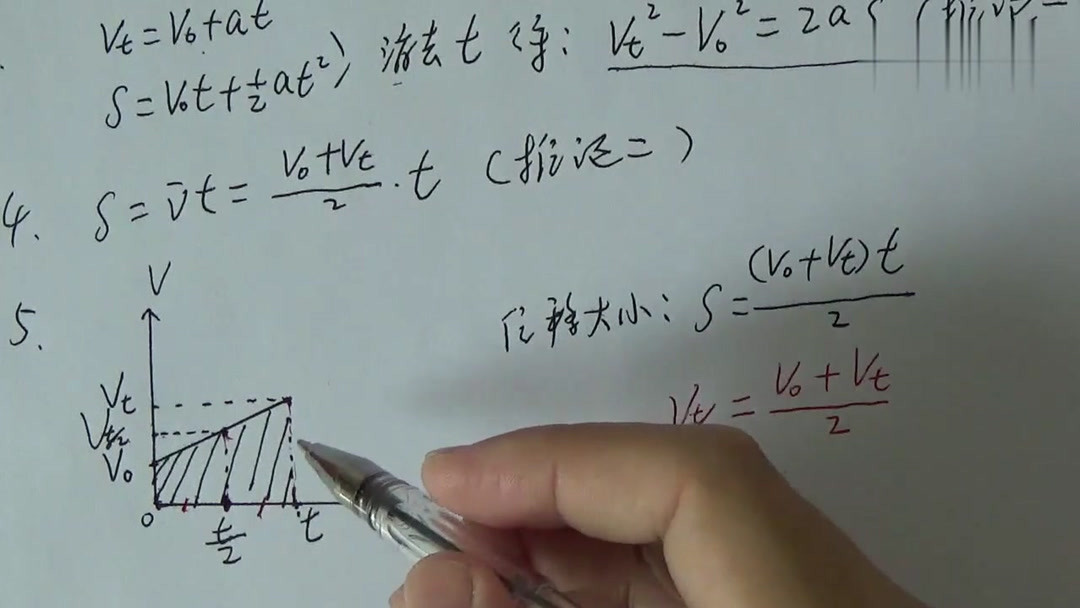 Vt=V₀+at
S=V₀t+½at²) 消去t得: Vt²-V₀²=2aS
4. S=v̄t=(V₀+Vt)/2·t (推论二)
5.
V
位移大小: S=(V₀+Vt)t/2
=(V₀+Vt)/2
Vt
Vt/2
V₀
0
t/2
t